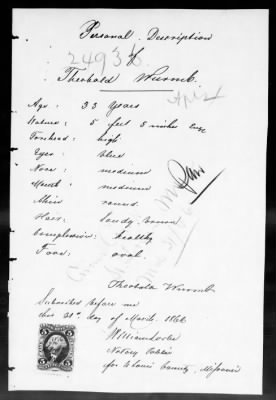 Personal Description
of
24936
Theobald Wurmb.
Age: 33 Years
Stature: 5 feet 8 inches Eng
Forehead: high
Eyes: blue
Nose: medium
Mouth: medium
Chin: round
Hair: Sandy brown
Complexion: healthy
Face: oval
Theobald Wurmb
Subscribed before me
this 31st day of March 1866
Notary Public
for St Louis County, Missouri